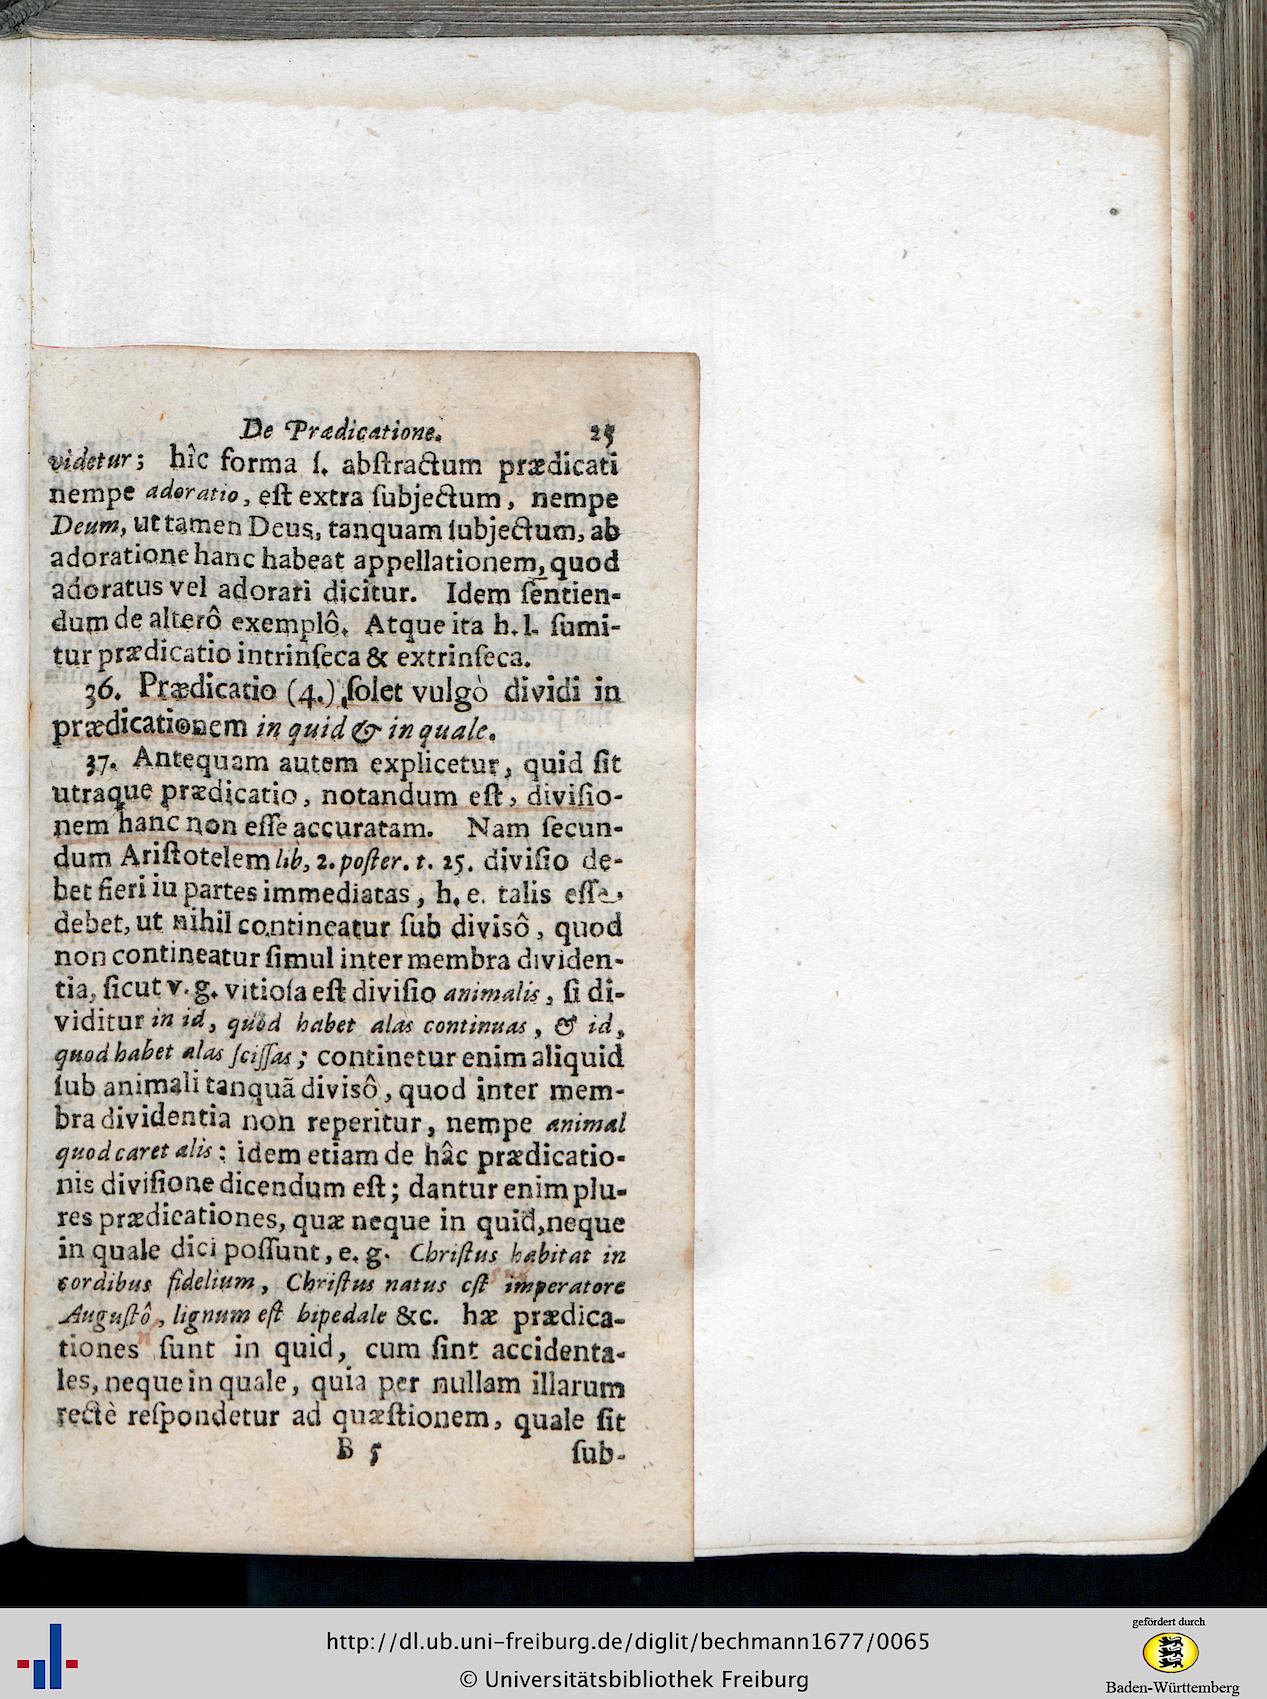 De Prædicatione. 25
videtur; hîc forma ſ. abſtractum prædicati
nempe adoratio, eſt extra ſubjectum, nempe
Deum, ut tamen Deus, tanquam ſubjectum, ab
adoratione hanc habeat appellationem, quod
adoratus vel adorari dicitur. Idem ſentien-
dum de alterô exemplô. Atque ita h. l. ſumi-
tur prædicatio intrinſeca & extrinſeca.
36. Prædicatio (4.) ſolet vulgò dividi in
prædicationem in quid & in quale.
37. Antequam autem explicetur, quid ſit
utraque prædicatio, notandum eſt, diviſio-
nem hanc non eſſe accuratam. Nam ſecun-
dum Ariſtotelem lib, 2. poſter. t. 25. diviſio de-
bet fieri iu partes immediatas, h. e. talis eſſe
debet, ut nihil contineatur ſub divisô, quod
non contineatur ſimul inter membra dividen-
tia, ſicut v. g. vitioſa eſt diviſio animalis, ſi di-
viditur in id, quod habet alas continuas, & id,
quod habet alas ſciſſas; continetur enim aliquid
ſub animali tanquã divisô, quod inter mem-
bra dividentia non reperitur, nempe animal
quod caret alis: idem etiam de hâc prædicatio-
nis diviſione dicendum eſt; dantur enim plu-
res prædicationes, quæ neque in quid, neque
in quale dici poſſunt, e. g. Chriſtus habitat in
cordibus fidelium, Chriſtus natus eſt imperatore
Auguſtô, lignum eſt bipedale &c. hæ prædica-
tiones ſunt in quid, cum ſint accidenta-
les, neque in quale, quia per nullam illarum
rectè reſpondetur ad quæſtionem, quale ſit
B 5 ſub-
http://dl.ub.uni-freiburg.de/diglit/bechmann1677/0065
© Universitätsbibliothek Freiburg
gefördert durch
Baden-Württemberg